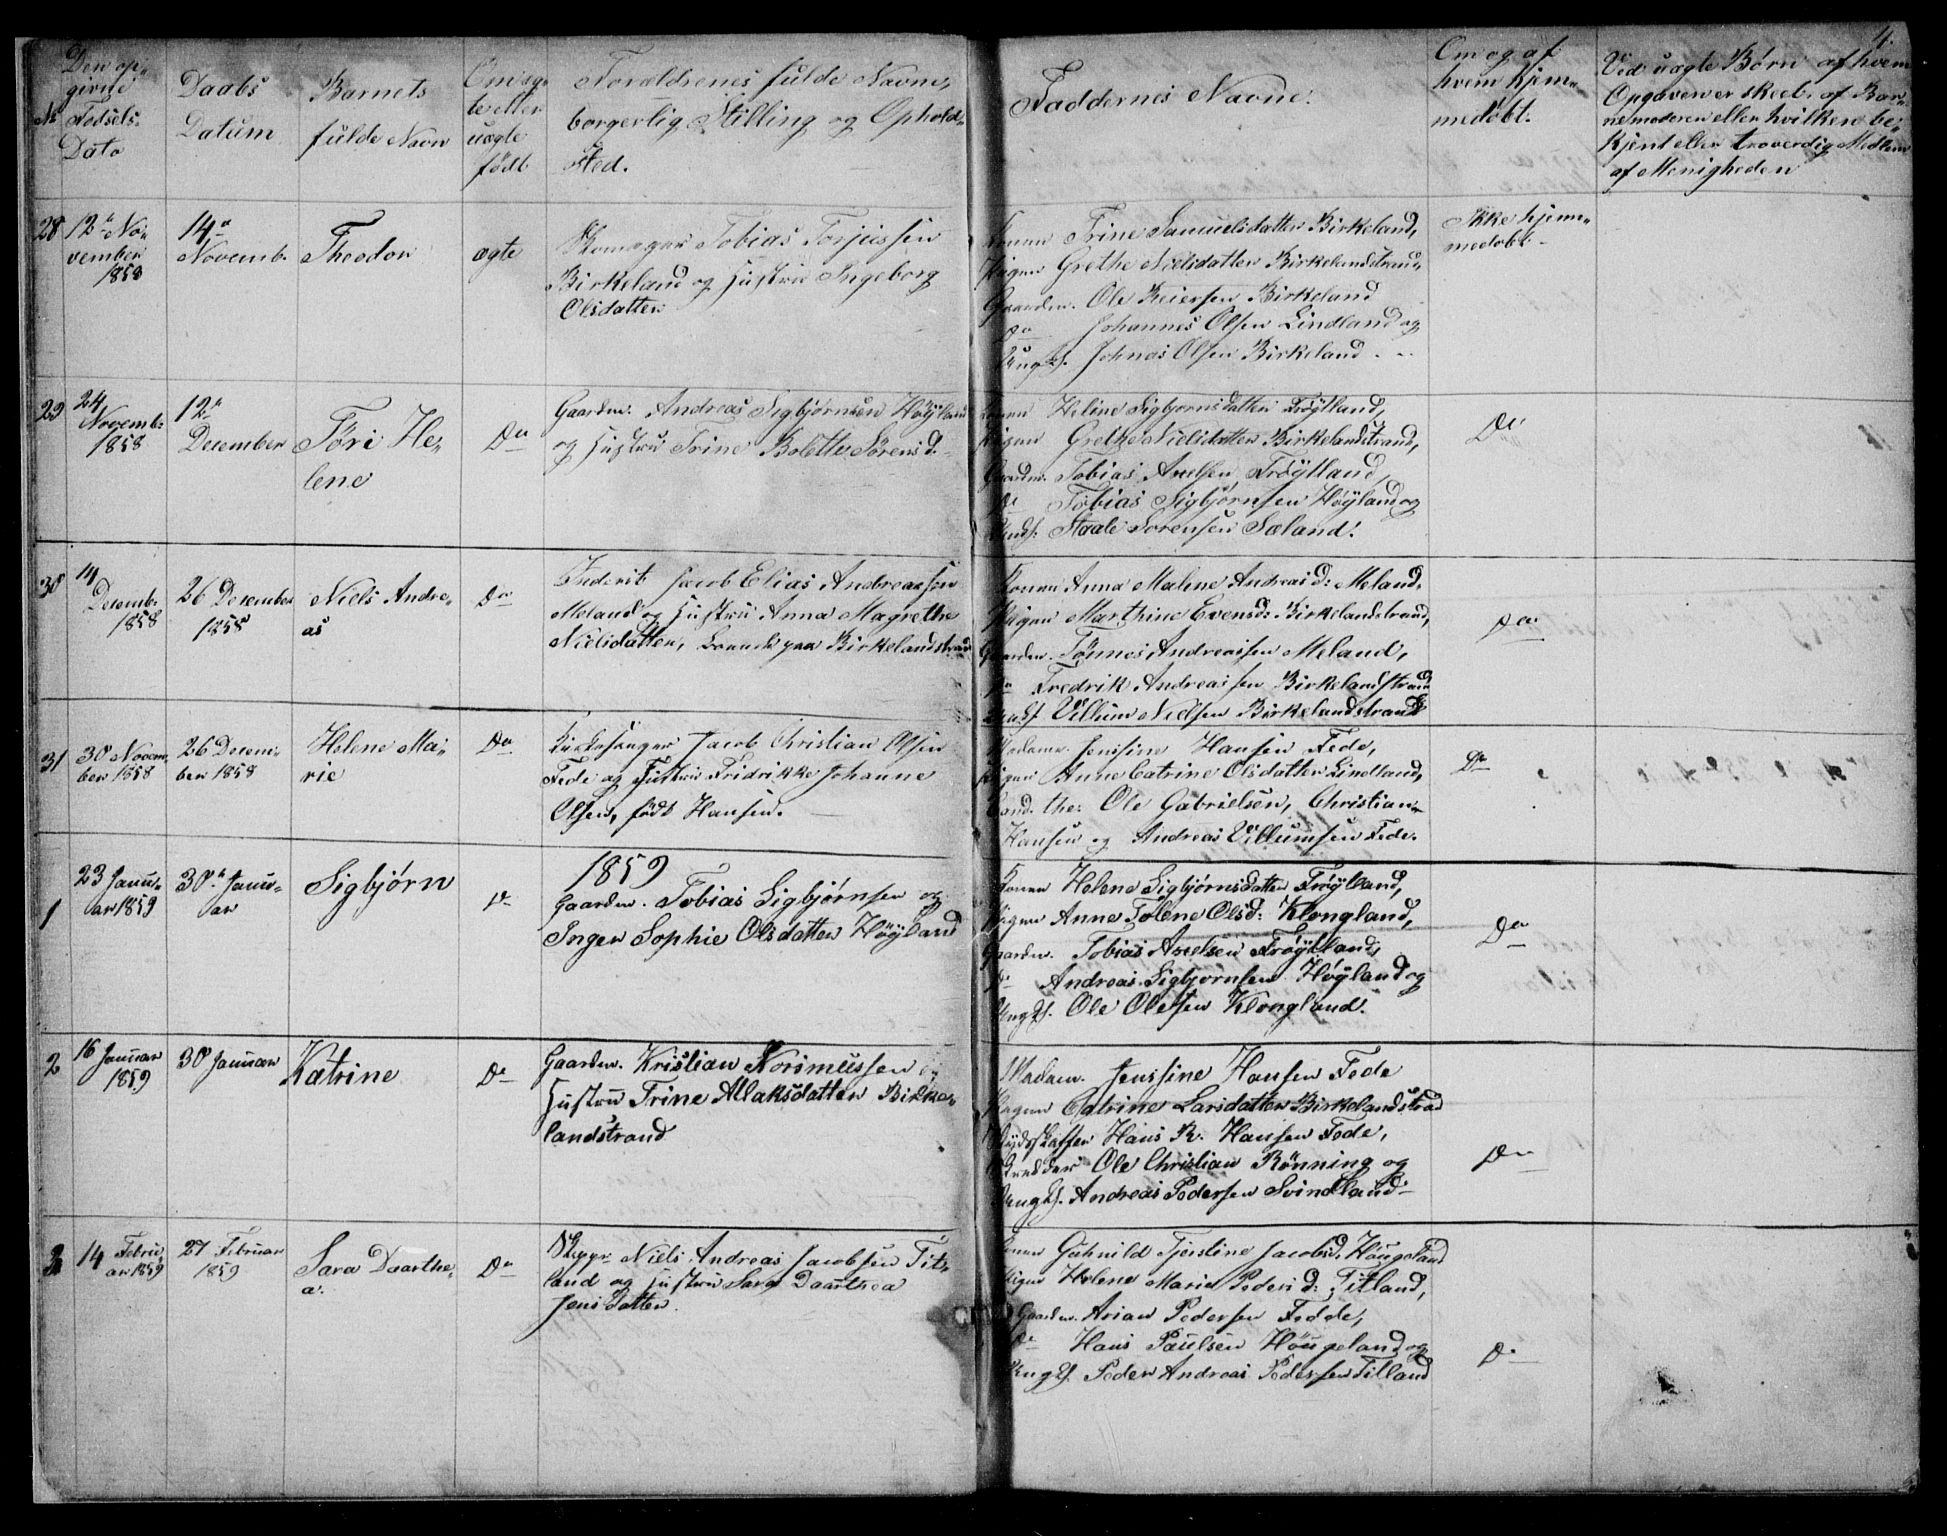 4.
No
Den op-
givne
Fødsels-
Dato
Daabs
Datum
Barnets
fulde Navn
Om æg-
te eller
uægte
født
Forældrenes fulde Navne,
borgerlig Stilling og Ophold-
sted.
Faddernes Navne.
Om og af
hvem hjem-
medøbt.
Ved uægte Børn af hvem
Opgaven er skeet. af Bar-
nemoderen eller hvilken be-
kjent eller troverdig Medlem
af Menigheden
28
12 No-
vember
1858
14
Novemb.
Theodor
ægte
Skomager Tobias Torjussen
Birkeland og Hustru Ingeborg
Olsdatter
Konen Trine Samuelsdatter Birkeland,
Pigen Grethe Nielsdatter Birkelandstrand,
Gaardm. Ole Reiersen Birkeland
Do Johannes Olsen Lindland og
Ungk. Johnas Olsen Birkeland
Ikke hjem-
medøbt
29
24
Novemb.
1858
12
Desember
Tøri He-
lene
Do
Gaardm. Andreas Sigbjørnsen Høyland
og Hustru Trine Bolette Sørensd.
Konen Heline Sigbjørnsdatter Frøytland,
Pigen Grethe Nielsdatter Birkelandstrand,
Gaardm. Tobias Axelsen Frøytland,
Do Tobias Sigbjørnsen Høyland og
Ungk. Staale Sørensen Sæland.
Do
30
14
Desemb.
1858
26 Desember
1858
Niels Andre-
as
Do
Inderst Jacob Elias Andreassen
Meland og Hustru Anna Magrethe
Nielsdatter, boende paa Birkelandstrand
Konen Anna Malene Andreasd: Meland,
Pigen Marthine Evensd: Birkelandstrand,
Gaardm. Tønnes Andreassen Meland,
Do Fredrik Andreassen Birkelandstrand
Ungk. Villum Nielsen Birkelandstrand
Do
31
30 Novem-
ber 1858
26 Desem-
ber 1858
Helene Ma-
rie
Do
Kirkesanger Jacob Christian Olsen
Fede og Hustru Fridrikke Johanne
Olsen, født Hansen.
Madame Jenssine Hansen Fede,
Pigen Anne Catrine Olsdatter Lindland,
Cand. the: Ole Gabrielsen, Christian
Hansen og Andreas Villumsen Fede.
Do
1859
1
23 Janu-
ar 1859
30 Janu-
ar
Sigbjørn
Do
Gaardm. Tobias Sigbjørnsen og
Inger Sophie Olsdatter Høyland
Konen Helene Sigbjørnsdatter Frøytland,
Pigen Anne Tolene Olsd: Klongland,
Gaardm. Tobias Axelsen Frøytland,
Do Andreas Sigbjørnsen Høyland og
Ungk. Ole Olesen Klongland.
Do
2
16 Januar
1859
30 Januar
Katrine
Do
Gaardm. Kristian Norsmussen og
Hustru Trine Allaksdatter Birke-
landstrand
Madam. Jenssine Hansen Fede
Pigen Catrine Larsdatter Birkelandstrad
Hans R. Hansen Fede,
Ole Christian Rønning og
Ungk. Andreas Pedersen Svindland
Do
3
14 Febru-
ar 1859
27 Februar
1859
Sara Daarthe-
a.
Do
Skppr. Niels Andreas Jacobsen Tit-
land og Hustru Sara Daarthea
Jensdatter.
Konen Guhnild Tjerstine Jacobsd. Høugeland
Pigen Helene Marie Pedersd: Titland,
Gaardm. Arian Pedersen Fedde,
Do Hans Paulsen Høugeland og
Ungk. Peder Andreas Pedersen Titland
Do